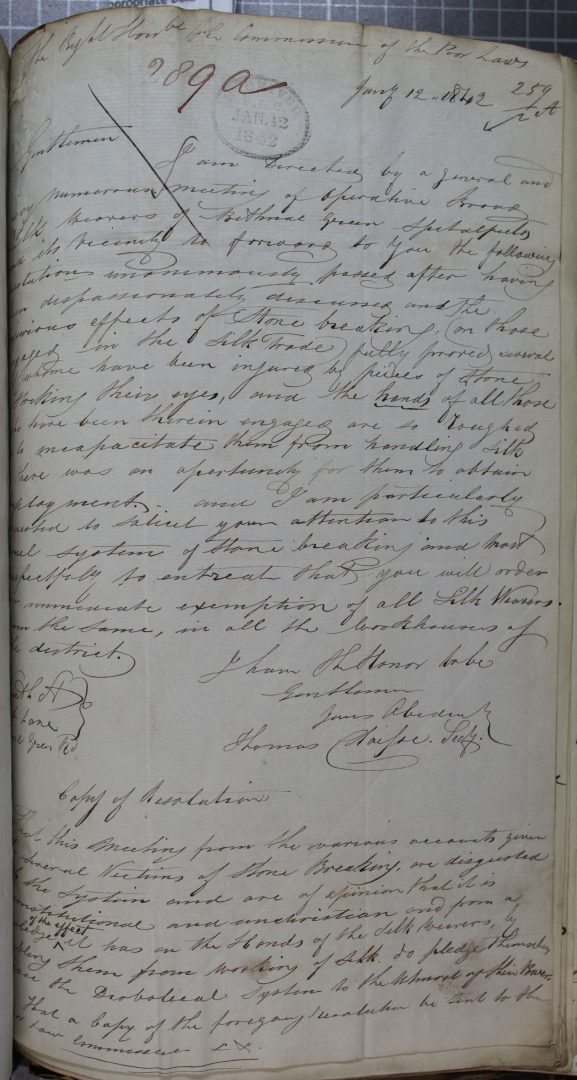 The Right Honble the Commissioners of the Poor Laws
289a
Jany 12 .. 1842
259
A
JAN. 12
1842
Gentlemen
I am Directed by a general and
numerous meeting of Operative Broad
Silk Weavers of Bethnal Green Spitalfields
and its Vicinity to forward to You the following
unanimously passed after having
dispassionately discussed and the
effects of Stone breaking, on those
in the Silk trade fully proved several
whome have been injured by pieces of Stone
their eyes, and the hands of all those
have been therein engaged are so roughed
incapacitate them from handling Silk
there was an oportunity for them to obtain
and I am particularly
to Salicit your attention to this
system of Stone breaking and most
to entreat that you will order
immediate exemption of all Silk Weavers
the same, in all the Workhouses of
district.
I have the Honor to be
Gentlemen
Yours Obedient
Thomas Secy.
Lane
Green Rd
Copy of Resolution
That this Meeting from the various accounts given
several Victims of Stone Breaking, are disgusted
the System and are of opinion that it is
and unchristian and from a
of the effect
it has on the Hands of the Silk Weavers, by
them from working of Silk. do pledge themselves
the Diobolical System to the Utmost of their Power
That a Copy of the foregoing resolution be sent to the
Law Commissioners &c.